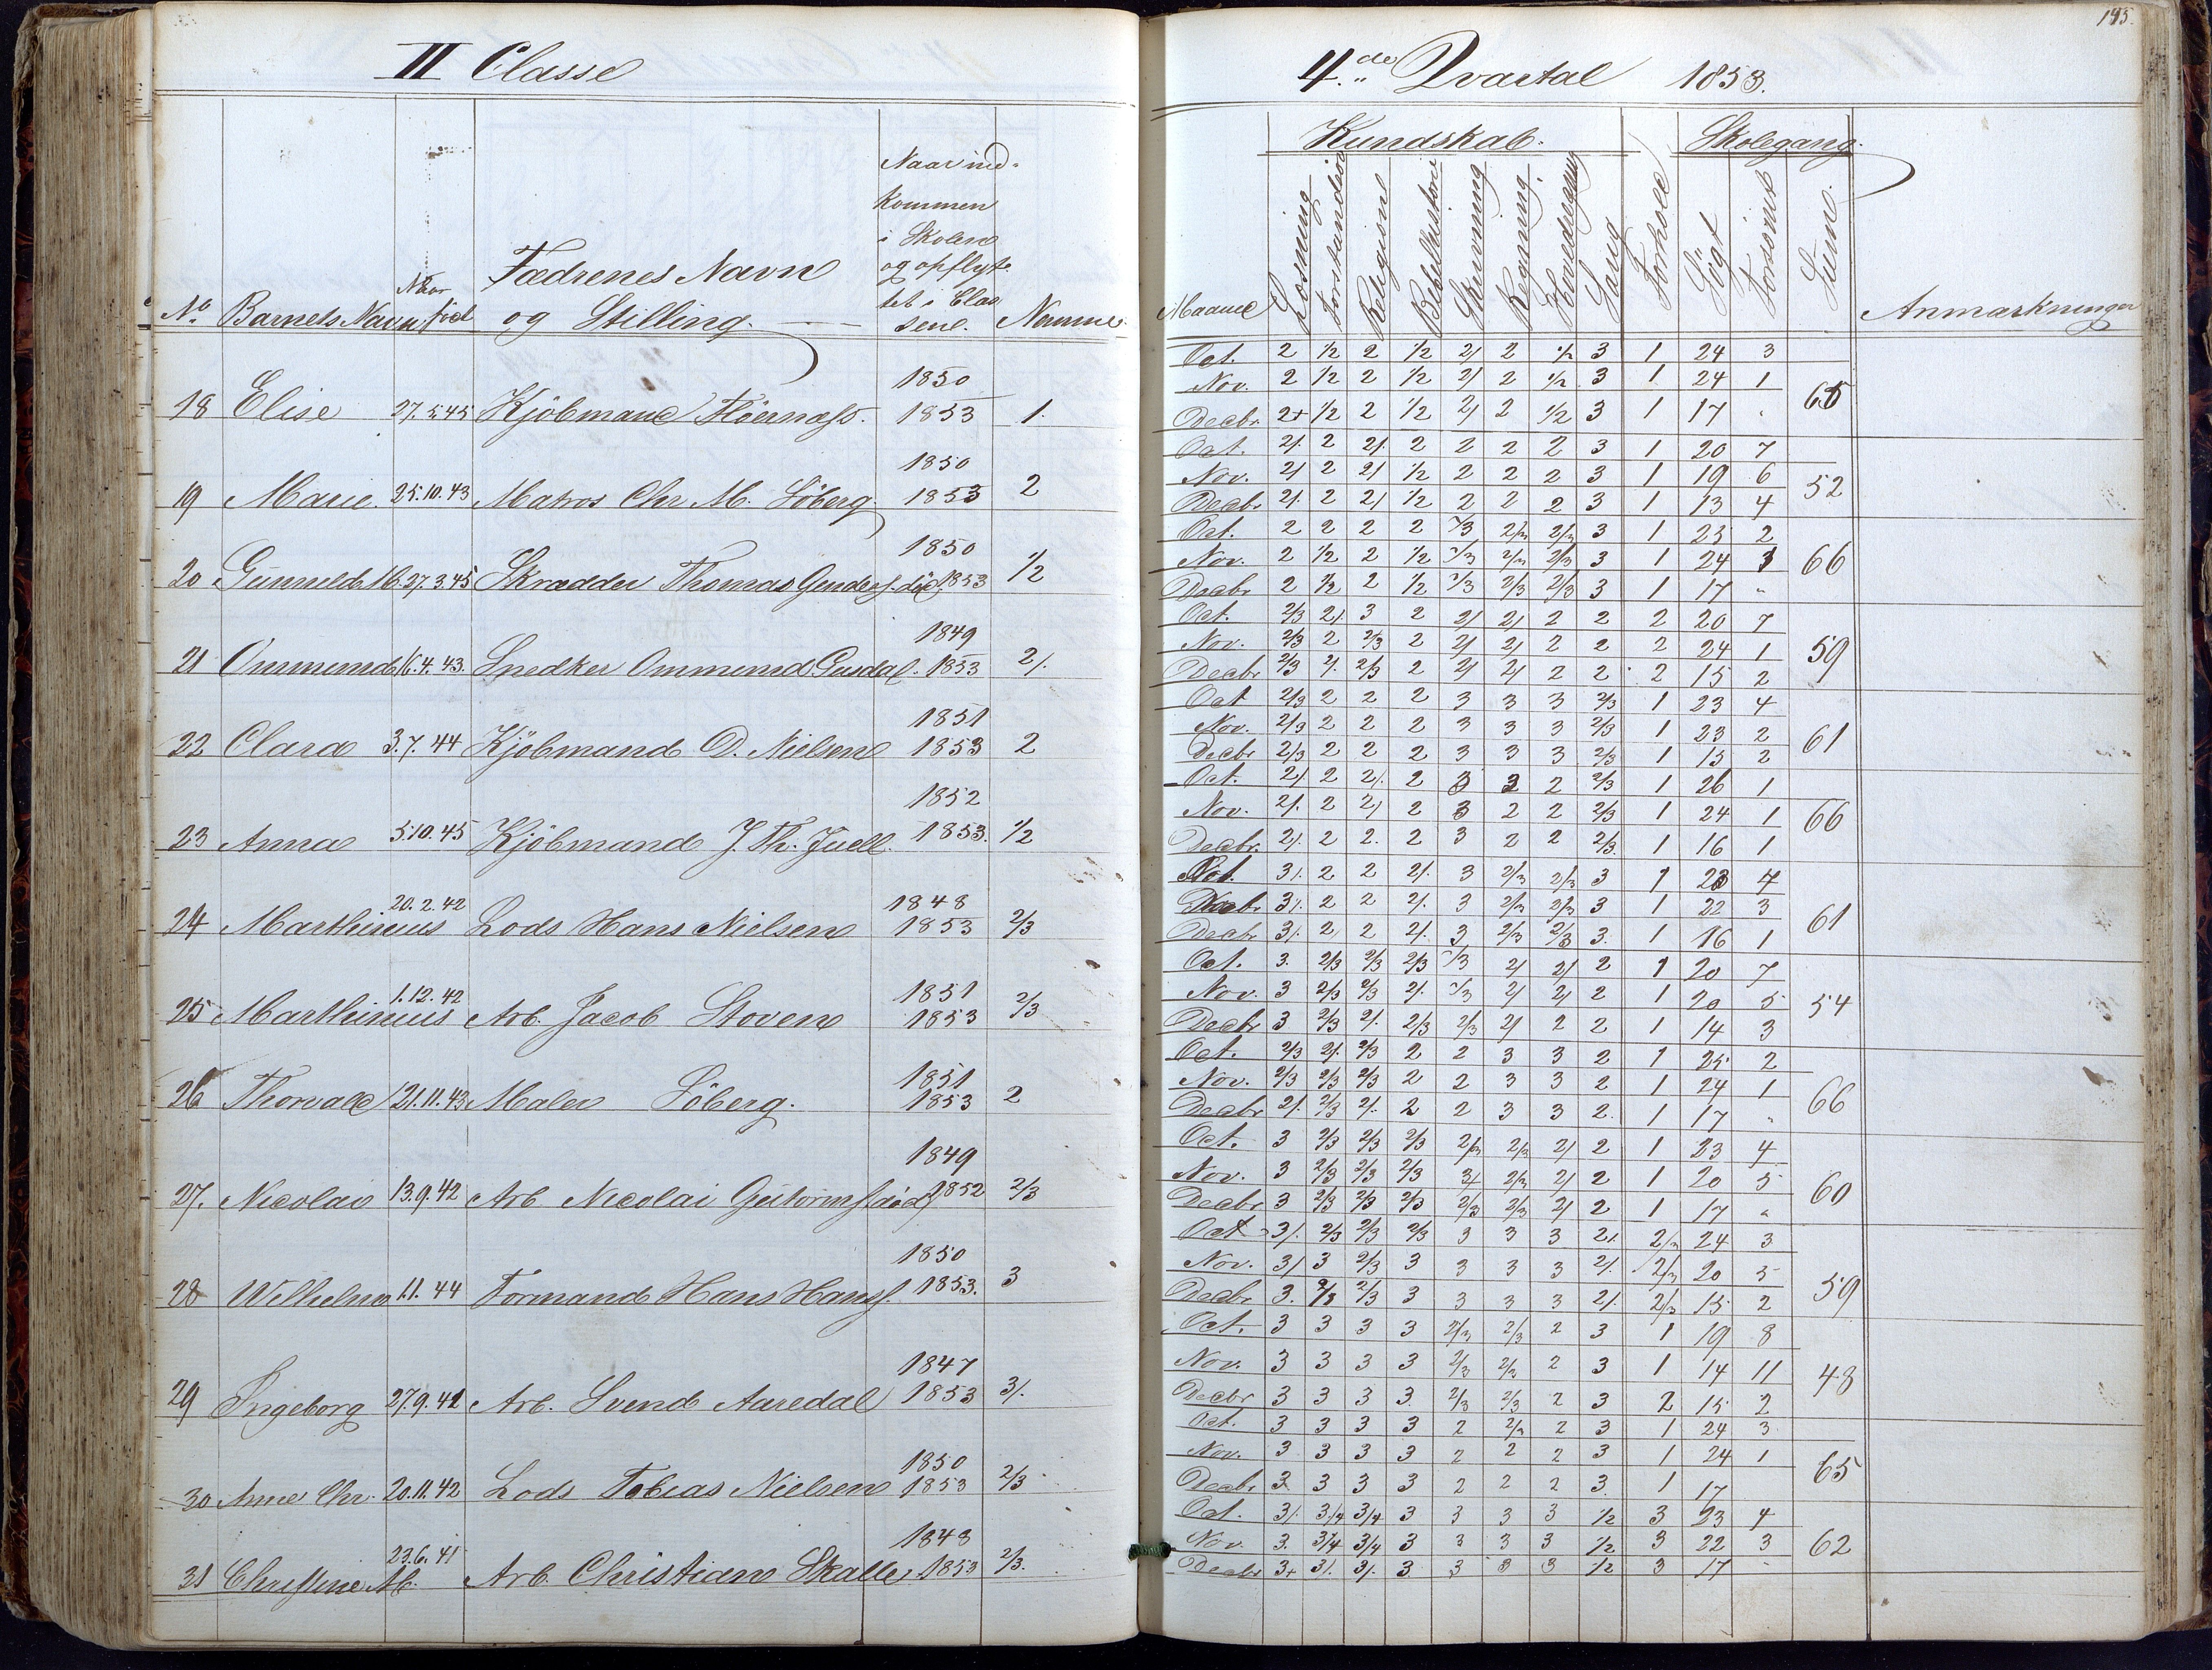 II Classe
No Barnets Navn Naar föd Fædrenes Navn og Stilling. Naar indkommen i Skolen og opflyttet i Classene. Numme
18 Elise 27.5.45 Kjöbmand 1850 1853 1.
19 Marie. 25.10.43 Matros Chr M. Söberg. 1850 1853 2
20 27.3.45 Skrædder Thomas 1850 1853 1/2
21 Ommund 16.4.43. Snedker Ommund 1849 1853 2/.
22 Clara 3.7.44 Kjöbmand O. Nielsen 1851 1853 2
23 Anna 5.10.45 Kjöbmand J. Th. Juell. 1852 1853. 1/2
24 Marthinius 20.2.42 Lods Hans Nielsen 1848 1853 2/3
25 Marthinius 1.12.42 Arb. Jacob Stoven 1851 1853 2/3
26 Thorvald 21.11.43 Maler Söberg. 1851 1853 2
27. Nicolai 13.9.42 Arb Nicolai 1849 1852 2/3
28 Wilhelm 1.1.44 Formand Hans Hanss. 1850 1853. 3
29 Ingeborg 27.9.41 Arb. Svend Aaredal 1847 1853 3/.
30 Anne Chr. 20.11.42 Lods Tobias Nielsen 1850 1853 2/3
31 Christine M. 23.6.41 Arb. Christian Skalle 1848 1853 2/3.
145.
4.de Qvartal 1853.
Kundskab. Skolegang.
Maaned Læsning Forstandese Religion Bibelhistorie Skrivning Regning. Hovedregning Sang Forhold Sögt Forsömt Sum. Anmærkninger
Oct. 2 1/2 2 1/2 2/ 2 1/2 3 1 24 3
Nov. 2 1/2 2 1/2 2/ 2 1/2 3 1 24 1 65
Decbr. 2+ 1/2 2 1/2 2/ 2 1/2 3 1 17 "
Oct. 2/. 2 2/. 2 2 2 2 3 1 20 7
Nov. 2/ 2 2/ 1/2 2 2 2 3 1 19 6 52
Decbr. 2/. 2 2/ 1/2 2 2 2 3 1 13 4
Oct. 2 2 2 2 2/3 2/3 2/3 3 1 25 2
Nov. 2 1/2 2 1/2 2/3 2/3 2/3 3 1 24 1 66
Decbr. 2 1/2 2 1/2 2/3 2/3 2/3 3 1 17 "
Oct. 2/3 2/. 3 2 2/ 2/ 2 2 2 20 7
Nov. 2/3 2 2/3 2 2/ 2/ 2 2 2 24 1 59
Decbr. 2/3 2/. 2/3 2 2/ 2/ 2 2 2 15 2
Oct 2/3 2 2 2 3 3 3 2/3 1 23 4
Nov. 2/3 2 2 2 3 3 3 2/3 1 23 2 61
Decbr 2/3 2 2 2 3 3 3 2/3 1 15 2
Oct. 2/. 2 2/. 2 3 2 2 2/3 1 26 1
Nov. 2/. 2 2/ 2 3 2 2 2/3 1 24 1 66
Decbr. 2/. 2 2. 2 3 2 2 2/3. 1 16 1
Oct. 3/. 2 2 2/. 3 2/3 2/3 3 1 23 4
Nov. 3/. 2 2 2/. 3 2/3 2/3 3 1 22 3 61
Decbr 3/. 2 2 2/. 3 2/3 2/3 3. 1 16 1
Oct. 3. 2/3 2/3 2/3 2/3 2/ 2/ 2 1 20 7
Nov. 3 2/3 2/3 2/. 2/3 2/ 2/ 2 1 20 5 54
Decbr 3 2/3 2/. 2/3 2/3 2/ 2 2 1 14 3
Oct. 2/3 2/. 2/3 2 2 3 3 2 1 25 2
Nov. 2/3 2/3 2/3 2 2 3 3 2 1 24 1 66
Decbr 2/. 2/3 2/. 2 2 3 3 2. 1 17 "
Oct. 3 2/3 2/3 2/3 2/3 2/3 2/ 2 1 23 4
Nov. 3 2/3 2/3 2/3 2/3 2/ 2 1 20 5 60
Decbr 3 2/3 2/3 2/3 2/3 2/3 2/ 2 1 17 "
Oct 3/. 2/3 2/3 2/3 3 3 3 2/. 2/3 24 3
Nov. 3/ 3 2/3 3 3 3 3 2/. 2/3 20 5 59
Decbr 3. 2/3 2/3 3 3 3 3 2/. 2/3 15 2
Oct. 3 3 3 3 2/3 2/3 2 3 1 19 8
Nov. 3 3 3 3 2/3 2/3 2 3 1 14 11 48
Decbr 3 3 3 3. 2/3 2/3 2 3 2 15 2
Oct. 3 3 3 3 2 2/3 2 3 1 24 3
Nov. 3 3 3 3 2 2 2 3 1 24 1 65
Decbr. 3 3 3 3 2 2 2 3. 1 17
Oct. 3/. 3/4 3/4 3 3 3 3 1/2 3 23 4
Nov. 3. 3/4 3/4 3 3 3 3 1/2 3 22 3 62
Decbr 3+ 3/. 3/. 3 3 3 3 1/2 3 17 "